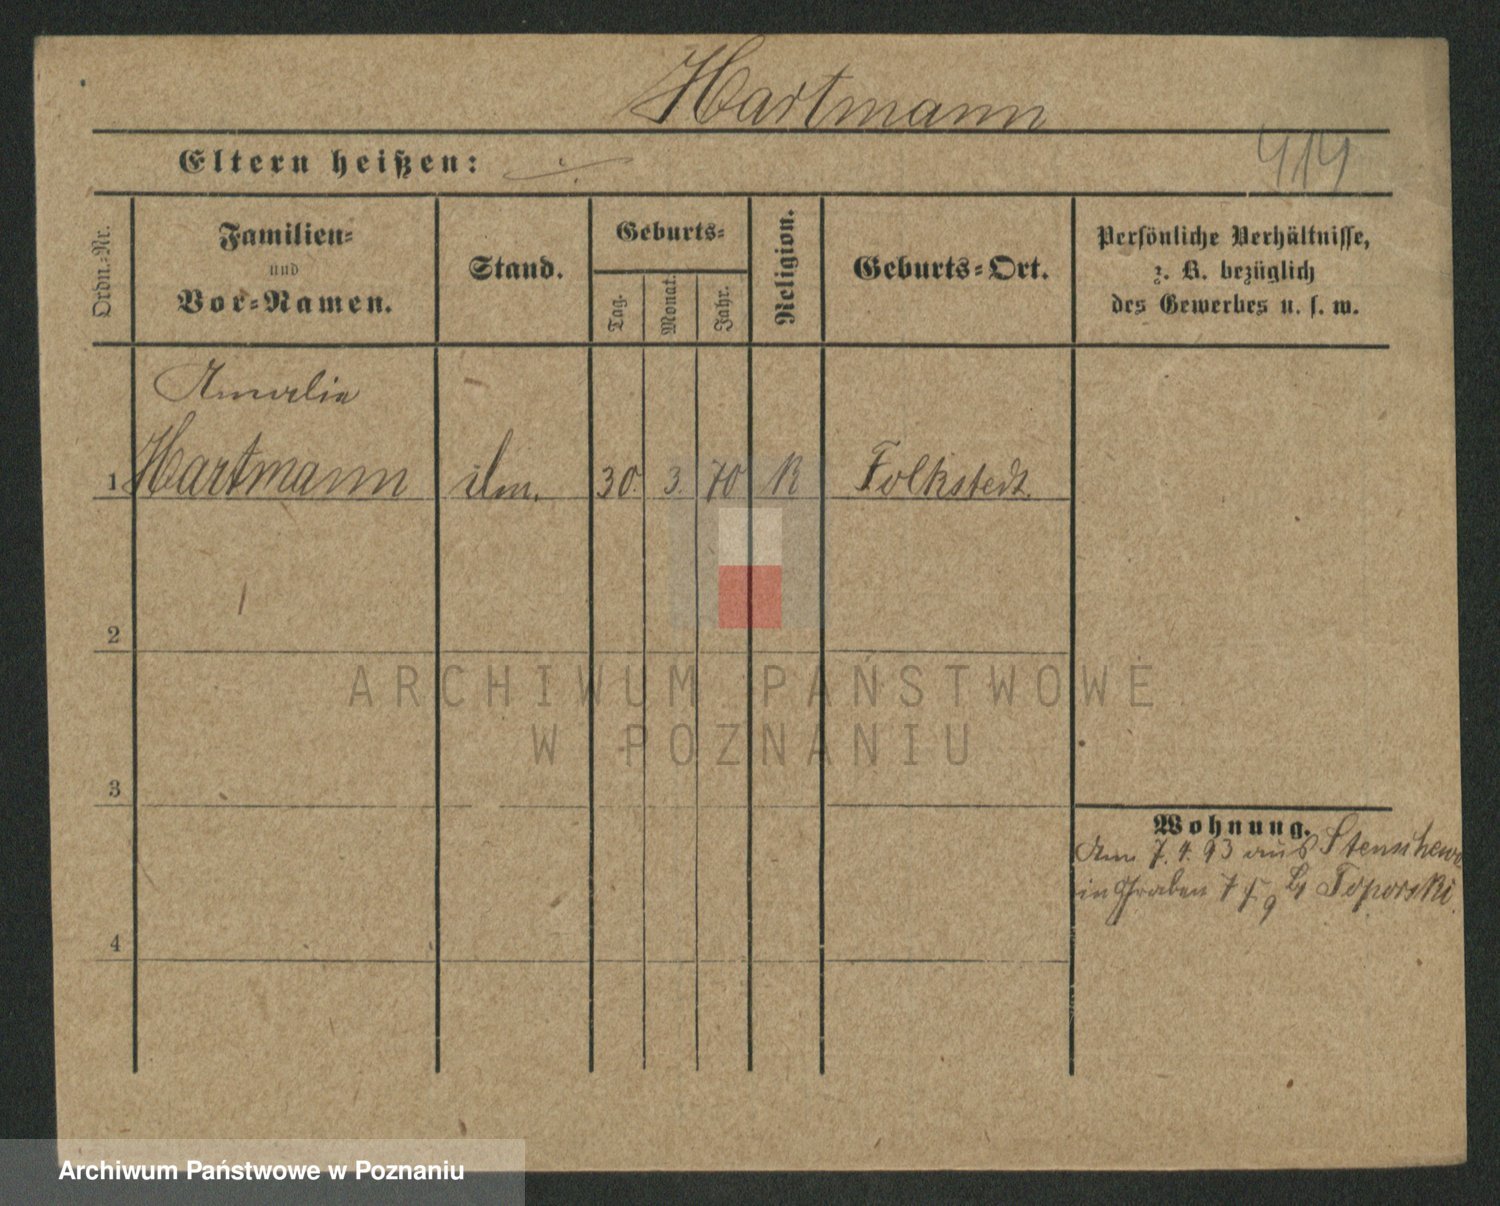 Hartmann
414
Eltern heißen:
Ordn.=Nr.
Familien=
und
Vor=Namen.
Stand.
Geburts=
Tag.
Monat.
Jahr.
Religion.
Geburts=Ort.
Persönliche Verhältnisse,
z. B. bezüglich
des Gewerbes u. s. w.
Amalie
1 Hartmann 30. 3. 70 K Folkstedt.
2
3
4
Wohnung.
Am 7. 4. 93 aus Stenschewo
in Graben 7 b/ Toporski
ARCHIWUM PAŃSTWOWE
W POZNANIU
Archiwum Państwowe w Poznaniu